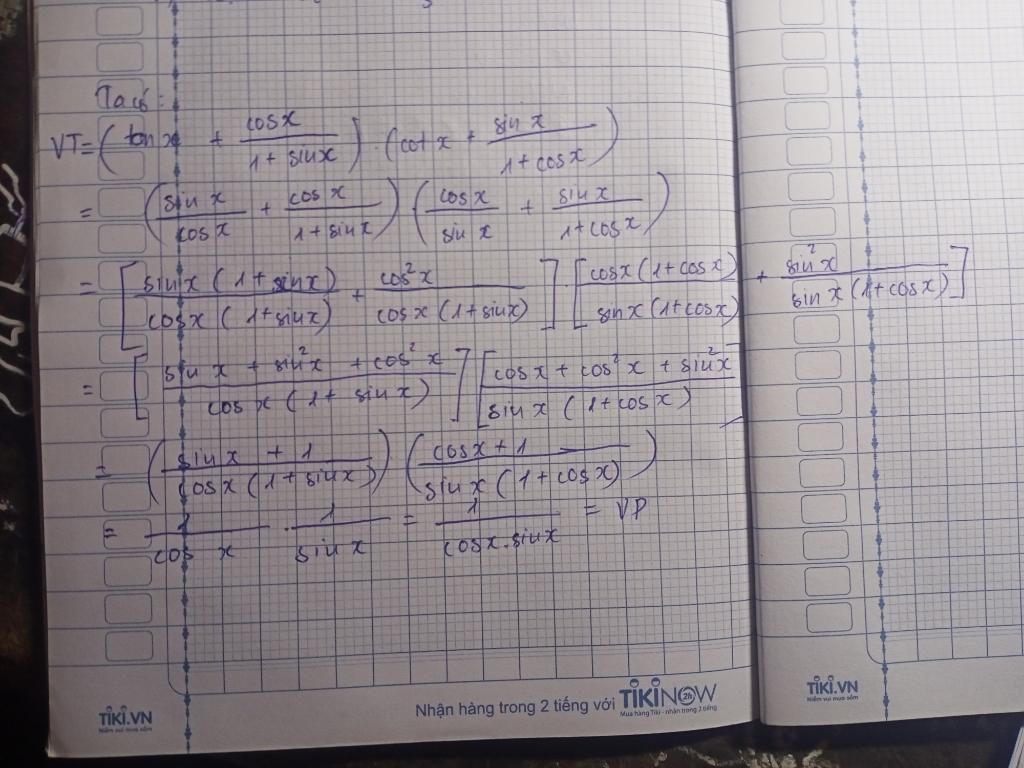 Ta có:
VT = (tan x + cosx/(1 + sinx)) . (cot x + sin x/(1 + cosx))
= (sin x/cosx + cosx/(1 + sinx)) . (cosx/sin x + sin x/(1 + cosx))
= [sinx(1 + sinx)/(cosx(1 + sinx)) + cos²x/(cosx(1 + sinx))] . [cosx(1 + cosx)/(sinx(1 + cosx)) + sin²x/(sinx(1 + cosx))]
= [(sin x + sin²x + cos²x)/(cosx(1 + sinx))] [(cosx + cos²x + sin²x)/(sin x(1 + cosx))]
= ((sin x + 1)/(cosx(1 + sinx))) . ((cosx + 1)/(sinx(1 + cosx)))
= 1/cos x . 1/sin x = 1/(cosx.sinx) = VP
TIKI.VN
Niềm vui mua sắm
Nhận hàng trong 2 tiếng với TIKINOW 2h
Mua hàng Tiki - nhận trong 2 tiếng
TIKI.VN
Niềm vui mua sắm